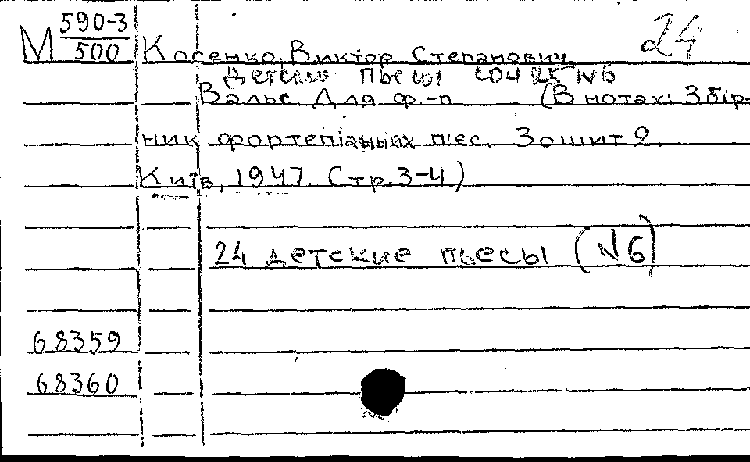 М 590-3/500
24
Косенко, Виктор Степанович
Детские пьесы соч 25 №6
Вальс. Для ф.-п. (В нотах: Збір-
ник фортепіанних п'єс. Зошит 2.
Київ, 1947. Стр. 3-4)
24 детские пьесы (№6)
68359
68360